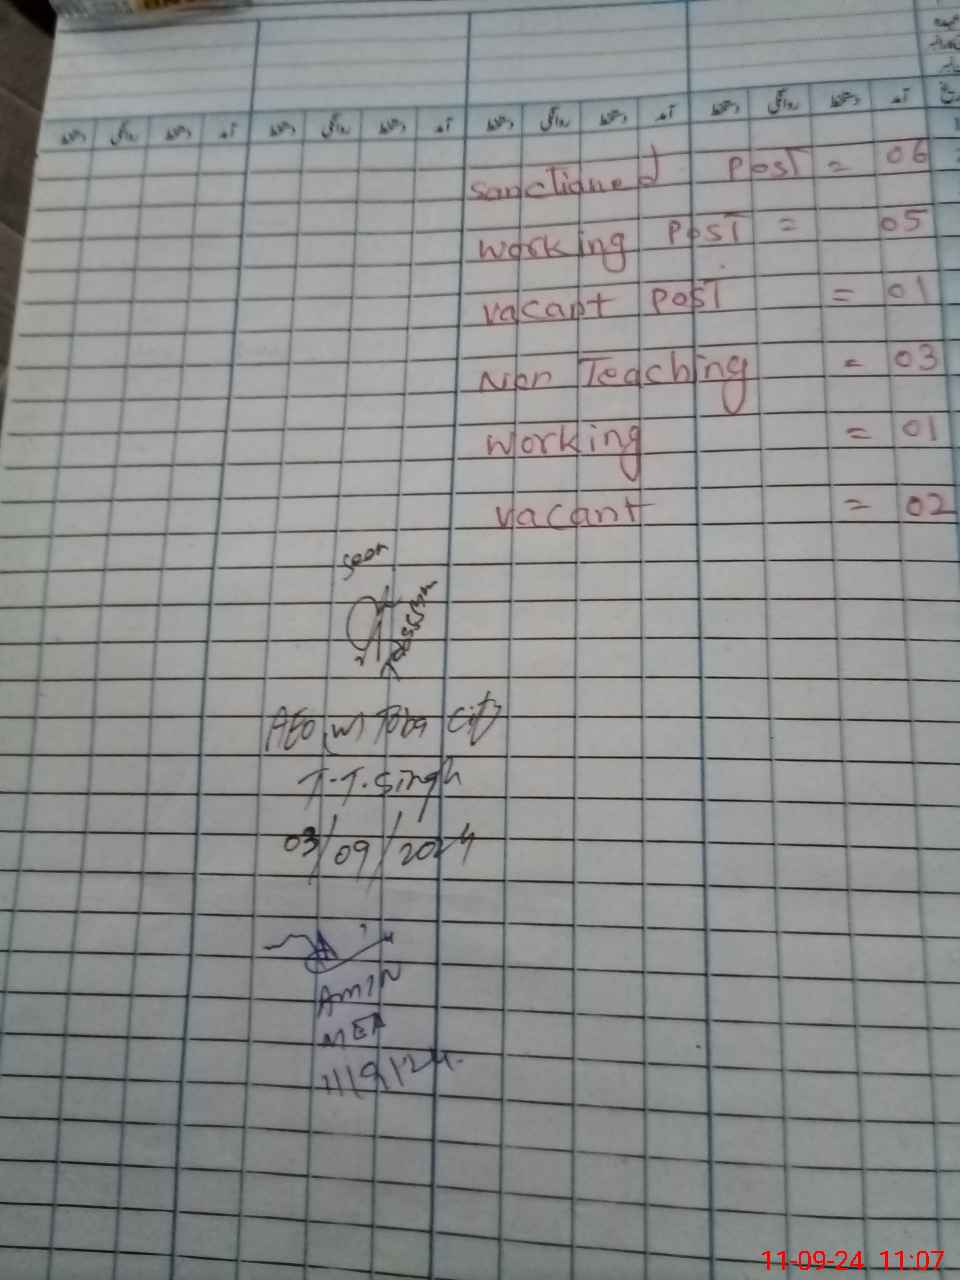 دستخط روانگی دستخط آمد دستخط روانگی دستخط آمد دستخط روانگی دستخط آمد دستخط روانگی دستخط آمد
Sanctioned Post = 06
Working Post = 05
Vacant Post = 01
Non Teaching = 03
Working = 01
Vacant = 02
Seen
Tabassum
AEO (W) Toba City
T.T. Singh
03/09/2024
Amin
MEA
11/9/24.
11-09-24 11:07